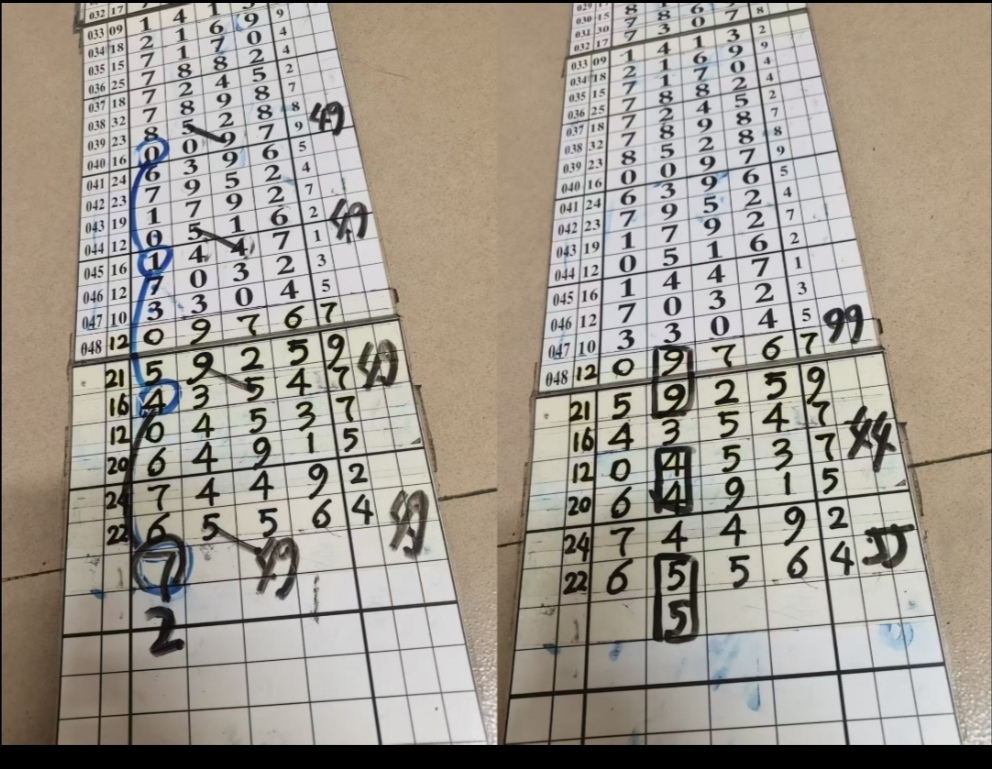 032 17
033 09 1 4 1
034 18 2 1 6 9 9
035 15 7 1 7 0 4
036 25 7 8 8 2 4
037 18 7 2 4 5 2
038 32 7 8 9 8 7
039 23 8 5 2 8 8 49
040 16 0 0 9 7 9
041 24 6 3 9 6 5
042 23 7 9 5 2 4
043 19 1 7 9 2 7
044 12 0 5 1 6 2 49
045 16 1 4 4 7 1
046 12 7 0 3 2 3
047 10 3 3 0 4 5
048 12 0 9 7 6 7
21 5 9 2 5 9 49
16 4 3 5 4 7
12 0 4 5 3 7
20 6 4 9 1 5
24 7 4 4 9 2
22 6 5 5 6 4 49
7 49
2
030 15
031 30
032 17 7 3 0 7 8
033 09 1 4 1 3 2
034 18 2 1 6 9 9
035 15 7 1 7 0 4
036 25 7 8 8 2 4
037 18 7 2 4 5 2
038 32 7 8 9 8 7
039 23 8 5 2 8 8
040 16 0 0 9 7 9
041 24 6 3 9 6 5
042 23 7 9 5 2 4
043 19 1 7 9 2 7
044 12 0 5 1 6 2
045 16 1 4 4 7 1
046 12 7 0 3 2 3
047 10 3 3 0 4 5 99
048 12 0 9 7 6 7
21 5 9 2 5 9
16 4 3 5 4 7 44
12 0 4 5 3 7
20 6 4 9 1 5
24 7 4 4 9 2 55
22 6 5 5 6 4
5